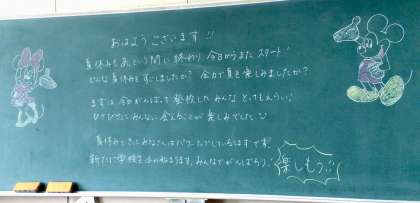 おはようございます!!
夏休みもあっという間に終わり、今日からまたスタート!
どんな夏休みをすごしましたか? 全力で夏を楽しみましたか?
まずは今日がんばって登校したみんな とってもえらい♪
ひさびさにみんなに会えることが楽しみでした
夏休み さんはパワー しているはずです。
新たに学校生活が始まります。みんなでがんばろう!
楽しもう!!